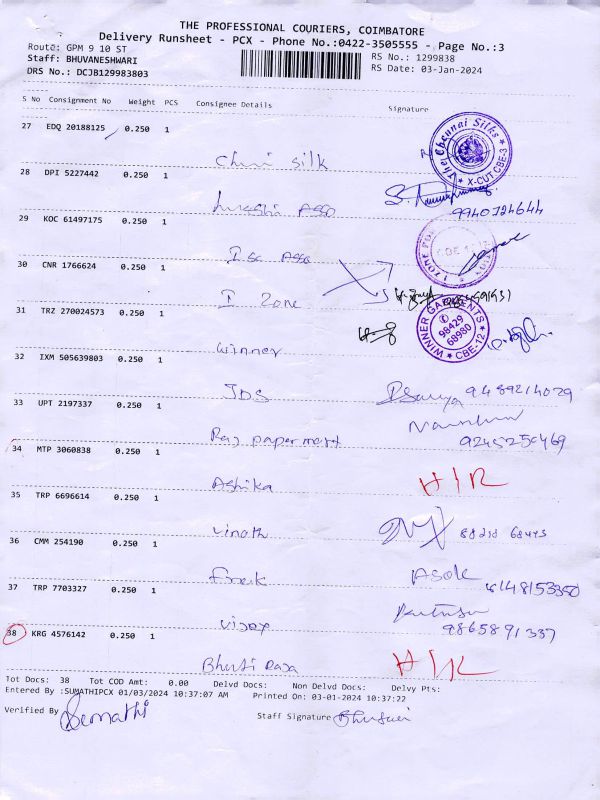 THE PROFESSIONAL COURIERS, COIMBATORE
Delivery Runsheet - PCX - Phone No.:0422-3505555 - Page No.:3
Route: GPM 9 10 ST RS No.: 1299838
Staff: BHUVANESHWARI RS Date: 03-Jan-2024
DRS No.: DCJB129983803
S No Consignment No Weight PCS Consignee Details Signature
27 EDQ 20188125 0.250 1
Chennai Silks X-CUT CBE-3
silk
28 DPI 5227442 0.250 1
Asso 9940724644
29 KOC 61497175 0.250 1
I ZONE CBE
Asso
30 CNR 1766624 0.250 1
I Zone
31 TRZ 270024573 0.250 1
WINNER GARMENTS 98429 68980 CBE-12
winner
32 IXM 505639803 0.250 1
JDS 9489214029
33 UPT 2197337 0.250 1
Raj paper mart 9245250469
34 MTP 3060838 0.250 1
Ashika
35 TRP 6696614 0.250 1
vinoth
36 CMM 254190 0.250 1
Asok 8148153350
37 TRP 7703327 0.250 1
vijay 9865891337
38 KRG 4576142 0.250 1
Raja
Tot Docs: 38 Tot COD Amt: 0.00 Delvd Docs: Non Delvd Docs: Delvy Pts:
Entered By :SUMATHIPCX 01/03/2024 10:37:07 AM Printed On: 03-01-2024 10:37:22
Verified By Staff Signature